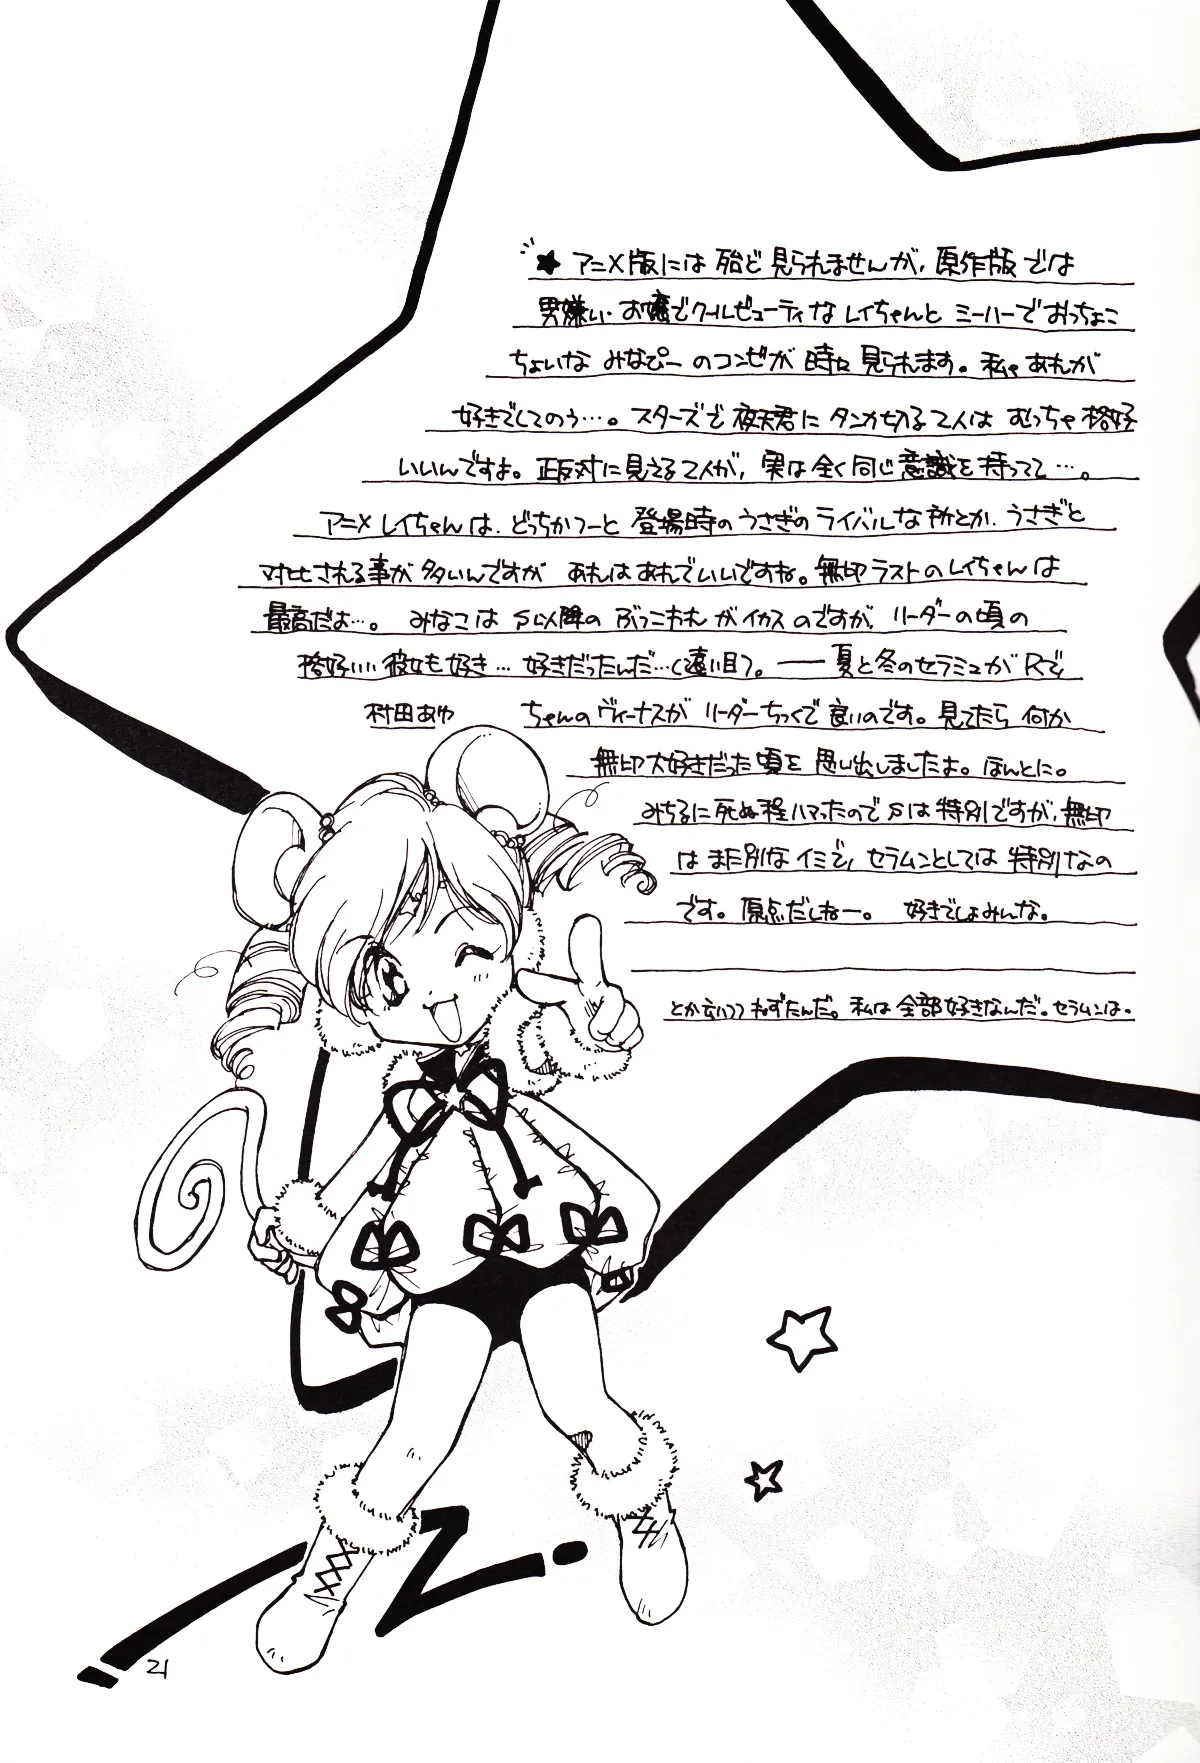 ★ アニメ版には殆ど見られませんが、原作版では
男嫌い・お嬢でクールビューティなレイちゃんとミーハーでおっちょこ
ちょいな みなぴーのコンビが時々見られます。私ゃあれが
好きでしてのう…。スターズで夜天君にタンカ切る2人はむっちゃ格好
いいんですよ。正反対に見える2人が、実は全く同じ意識を持ってて…。
アニメレイちゃんは、どっちかつーと登場時のうさぎのライバルな所とか、うさぎと
対比される事が多いんですが あれはあれでいいですね。無印ラストのレイちゃんは
最高だよ…。 みなこはS以降のぶっこわれがイカスのですが、リーダーの頃の
格好いい彼女も好き…好きだったんだ…(遠い目)。――夏と冬のセラミュがRで、
村田あゆちゃんのヴィーナスがリーダーちっくで良いのです。見てたら何か
無印大好きだった頃を思い出しましたよ。ほんとに。
みちるに死ぬ程ハマったのでSは特別ですが、無印
はまた別なイミで、セラムンとしては特別なの
です。原点だしねー。 好きでしょみんな。
とか言いつつ ねずたんだ。私は全部好きなんだ。セラムンは。
21